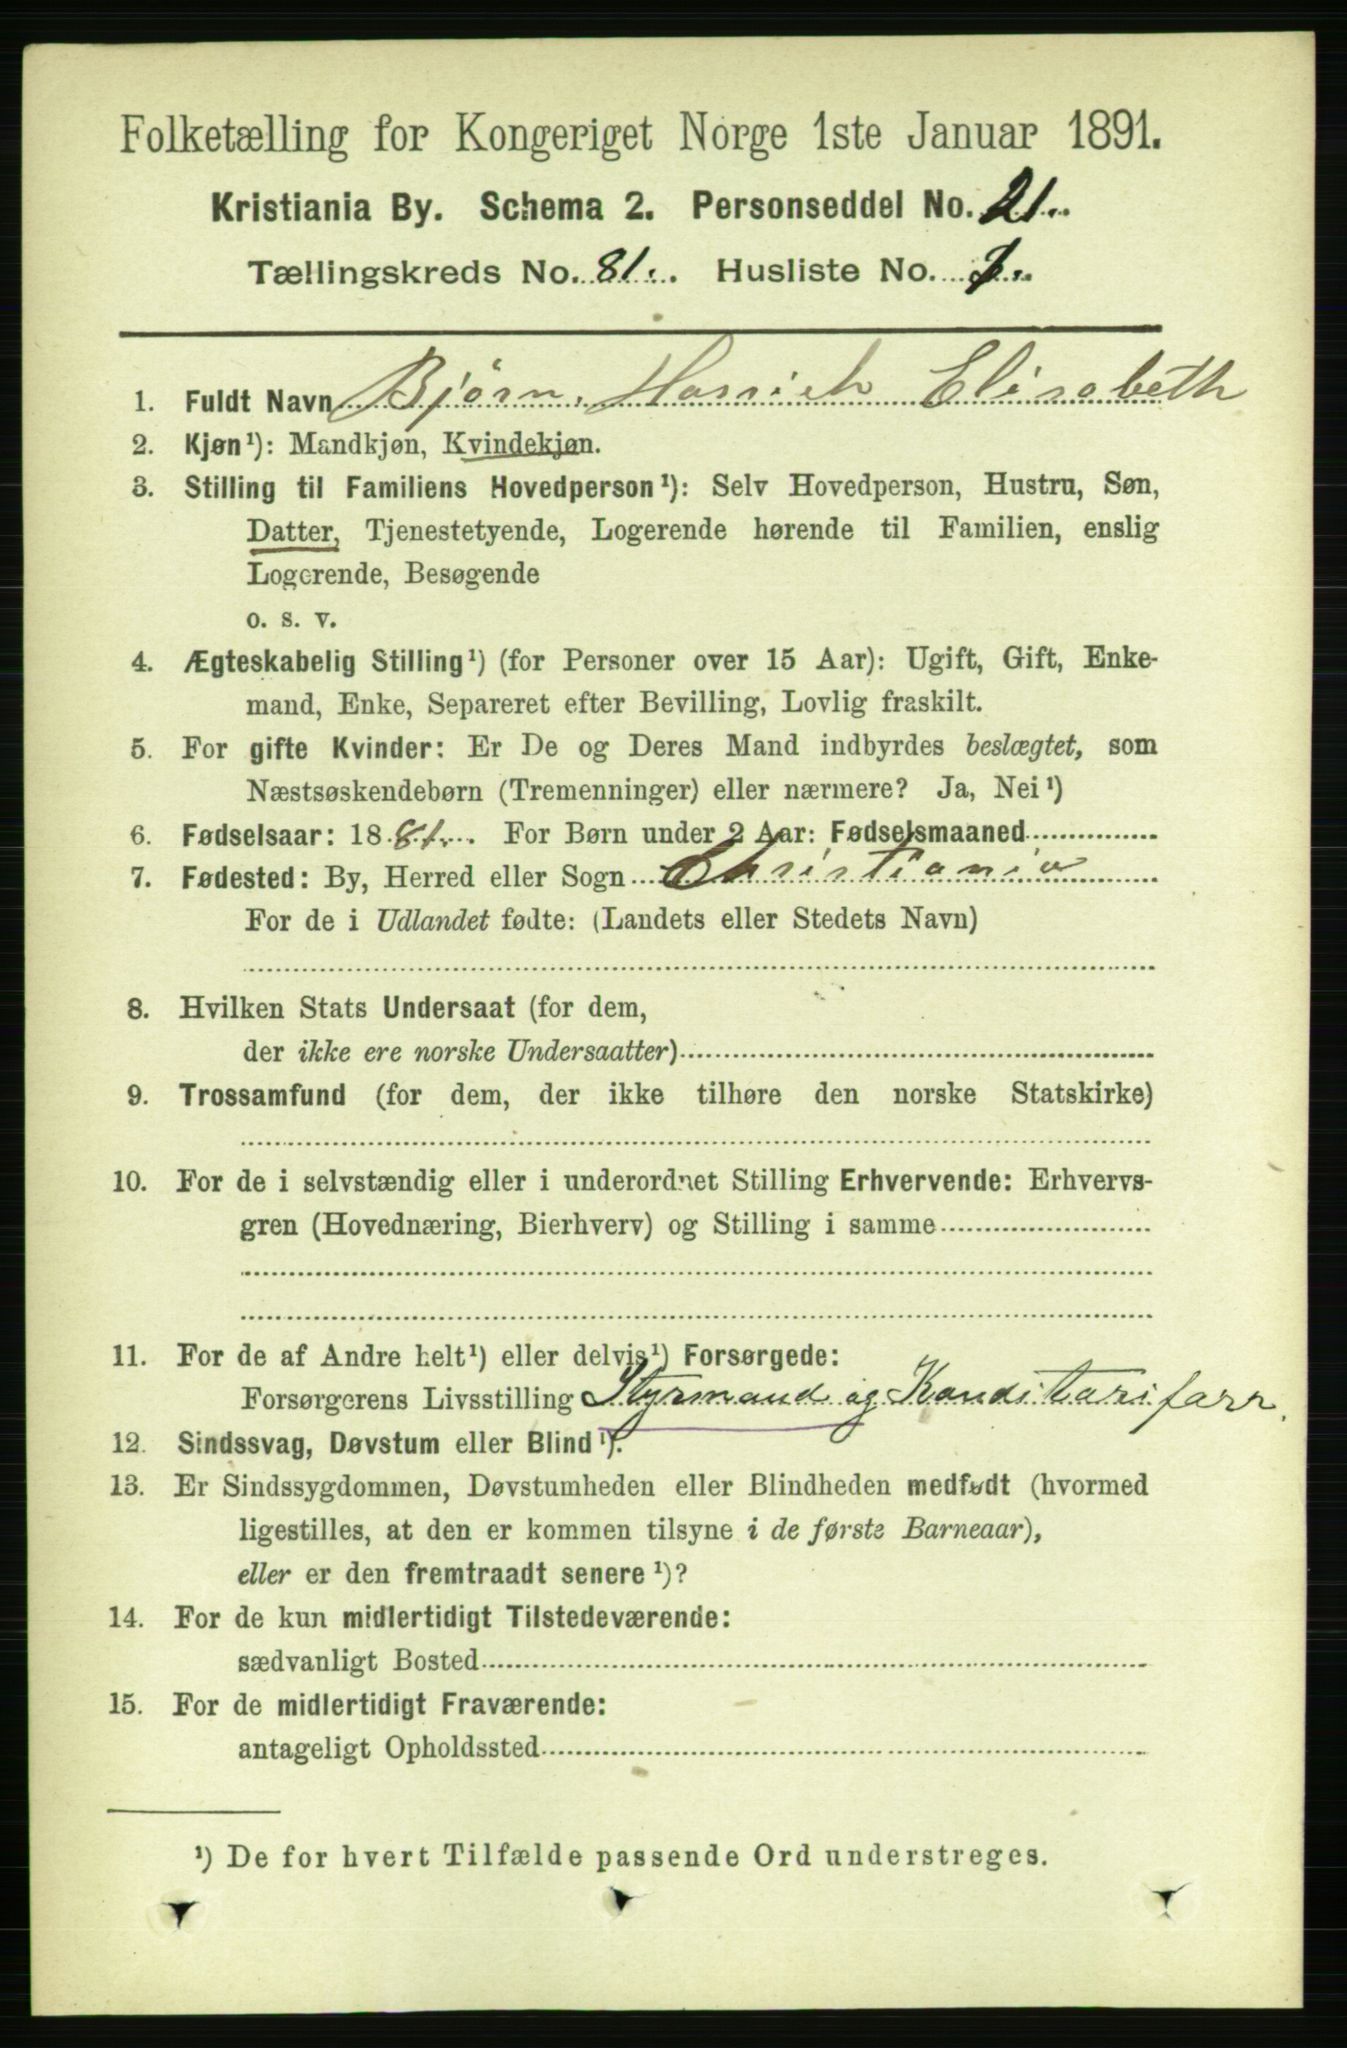 Folketælling for Kongeriget Norge 1ste Januar 1891.
Kristiania By. Schema 2. Personseddel No. 21.
Tællingskreds No. 81. Husliste No.
1. Fuldt Navn Bjørn, Elisabeth
2. Kjøn¹): Mandkjøn, Kvindekjøn.
3. Stilling til Familiens Hovedperson¹): Selv Hovedperson, Hustru, Søn,
Datter, Tjenestetyende, Logerende hørende til Familien, enslig
Logerende, Besøgende
o. s. v.
4. Ægteskabelig Stilling¹) (for Personer over 15 Aar): Ugift, Gift, Enke-
mand, Enke, Separeret efter Bevilling, Lovlig fraskilt.
5. For gifte Kvinder: Er De og Deres Mand indbyrdes beslægtet, som
Næstsøskendebørn (Tremenninger) eller nærmere? Ja, Nei¹)
6. Fødselsaar: 1881. For Børn under 2 Aar: Fødselsmaaned
7. Fødested: By, Herred eller Sogn Christiania
For de i Udlandet fødte: (Landets eller Stedets Navn)
8. Hvilken Stats Undersaat (for dem,
der ikke ere norske Undersaatter)
9. Trossamfund (for dem, der ikke tilhøre den norske Statskirke)
10. For de i selvstændig eller i underordnet Stilling Erhvervende: Erhvervs-
gren (Hovednæring, Bierhverv) og Stilling i samme
11. For de af Andre helt¹) eller delvis¹) Forsørgede:
Forsørgerens Livsstilling Styrmand og Kanditarifarr.
12. Sindssvag, Døvstum eller Blind¹).
13. Er Sindssygdommen, Døvstumheden eller Blindheden medfødt (hvormed
ligestilles, at den er kommen tilsyne i de første Barneaar),
eller er den fremtraadt senere¹)?
14. For de kun midlertidigt Tilstedeværende:
sædvanligt Bosted
15. For de midlertidigt Fraværende:
antageligt Opholdssted
¹) De for hvert Tilfælde passende Ord understreges.